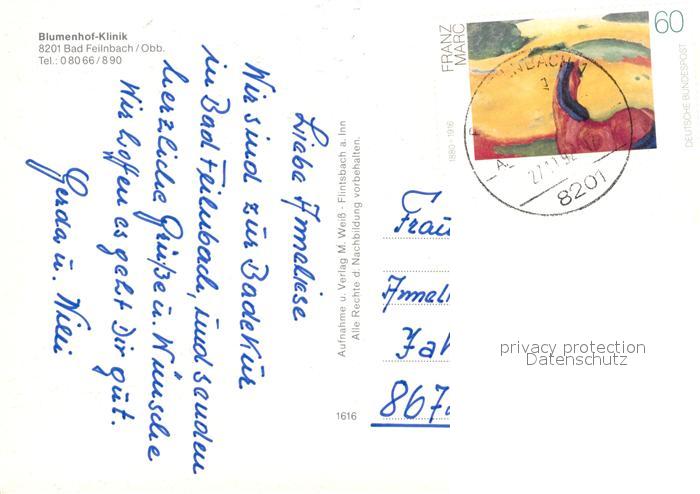 Blumenhof-Klinik
8201 Bad Feilnbach/Obb.
Tel.: 0 80 66 / 8 90
Liebe Anneliese
Wir sind zur Badekur
in Bad Feilnbach, und senden
herzliche Grüße u. Wünsche
Wir hoffen es geht Dir gut.
Gerda u. Willi
Aufnahme u. Verlag M. Weiß · Flintsbach a. Inn
Alle Rechte d. Nachbildung vorbehalten.
1616
FRANZ
MARC
1880 - 1916
60
DEUTSCHE BUNDESPOST
8201
Frau
Anneli
867
privacy protection
Datenschutz